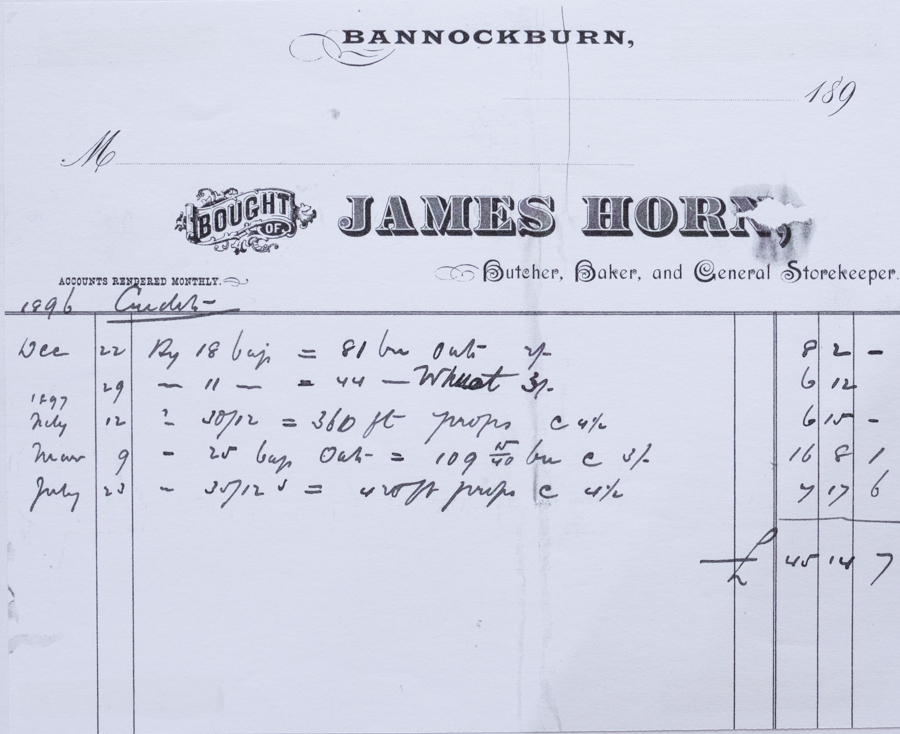 BANNOCKBURN,
189
M
BOUGHT OF JAMES HORN,
Butcher, Baker, and General Storekeeper.
ACCOUNTS RENDERED MONTHLY.
1896 Credit
Dec 22 By 18 bags = 81 bu Oats 2/- 8 2 -
29 - 11 - = 44 - Wheat 3/- 6 12
1897
Feby 12 - 30/12 = 360 ft props c 4½ 6 15 -
Mar 9 - 25 bags Oats = 109 15/40 bu c 3/- 16 8 1
July 23 - 35/12s = 420ft props c 4½ 7 17 6
£ 45 14 7